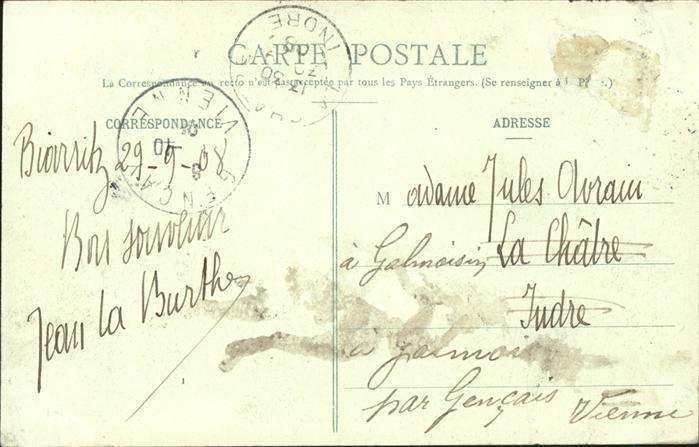 CARTE POSTALE
La Correspondance au recto n'est pas acceptée par tous les Pays Étrangers. (Se renseigner à la Poste.)
CORRESPONDANCE
ADRESSE
Biarritz 29-9-08
Bon souvenir
Jean La Burthe
Madame Jules Avrain
La Châtre
Indre
à Galmoisin
à
par Gençais
Vienne
LA CHATRE
INDRE
GENCAY
VIENNE